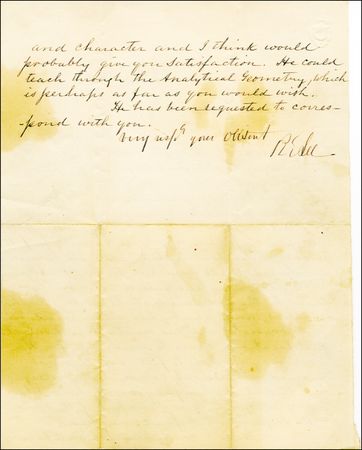 and character and I think would
probably give you Satisfaction. He could
teach through the Analytical Geometry, which
is perhaps as far as you would wish.
He has been requested to corres-
pond with you.
Very respy your Obt Svt
R E Lee